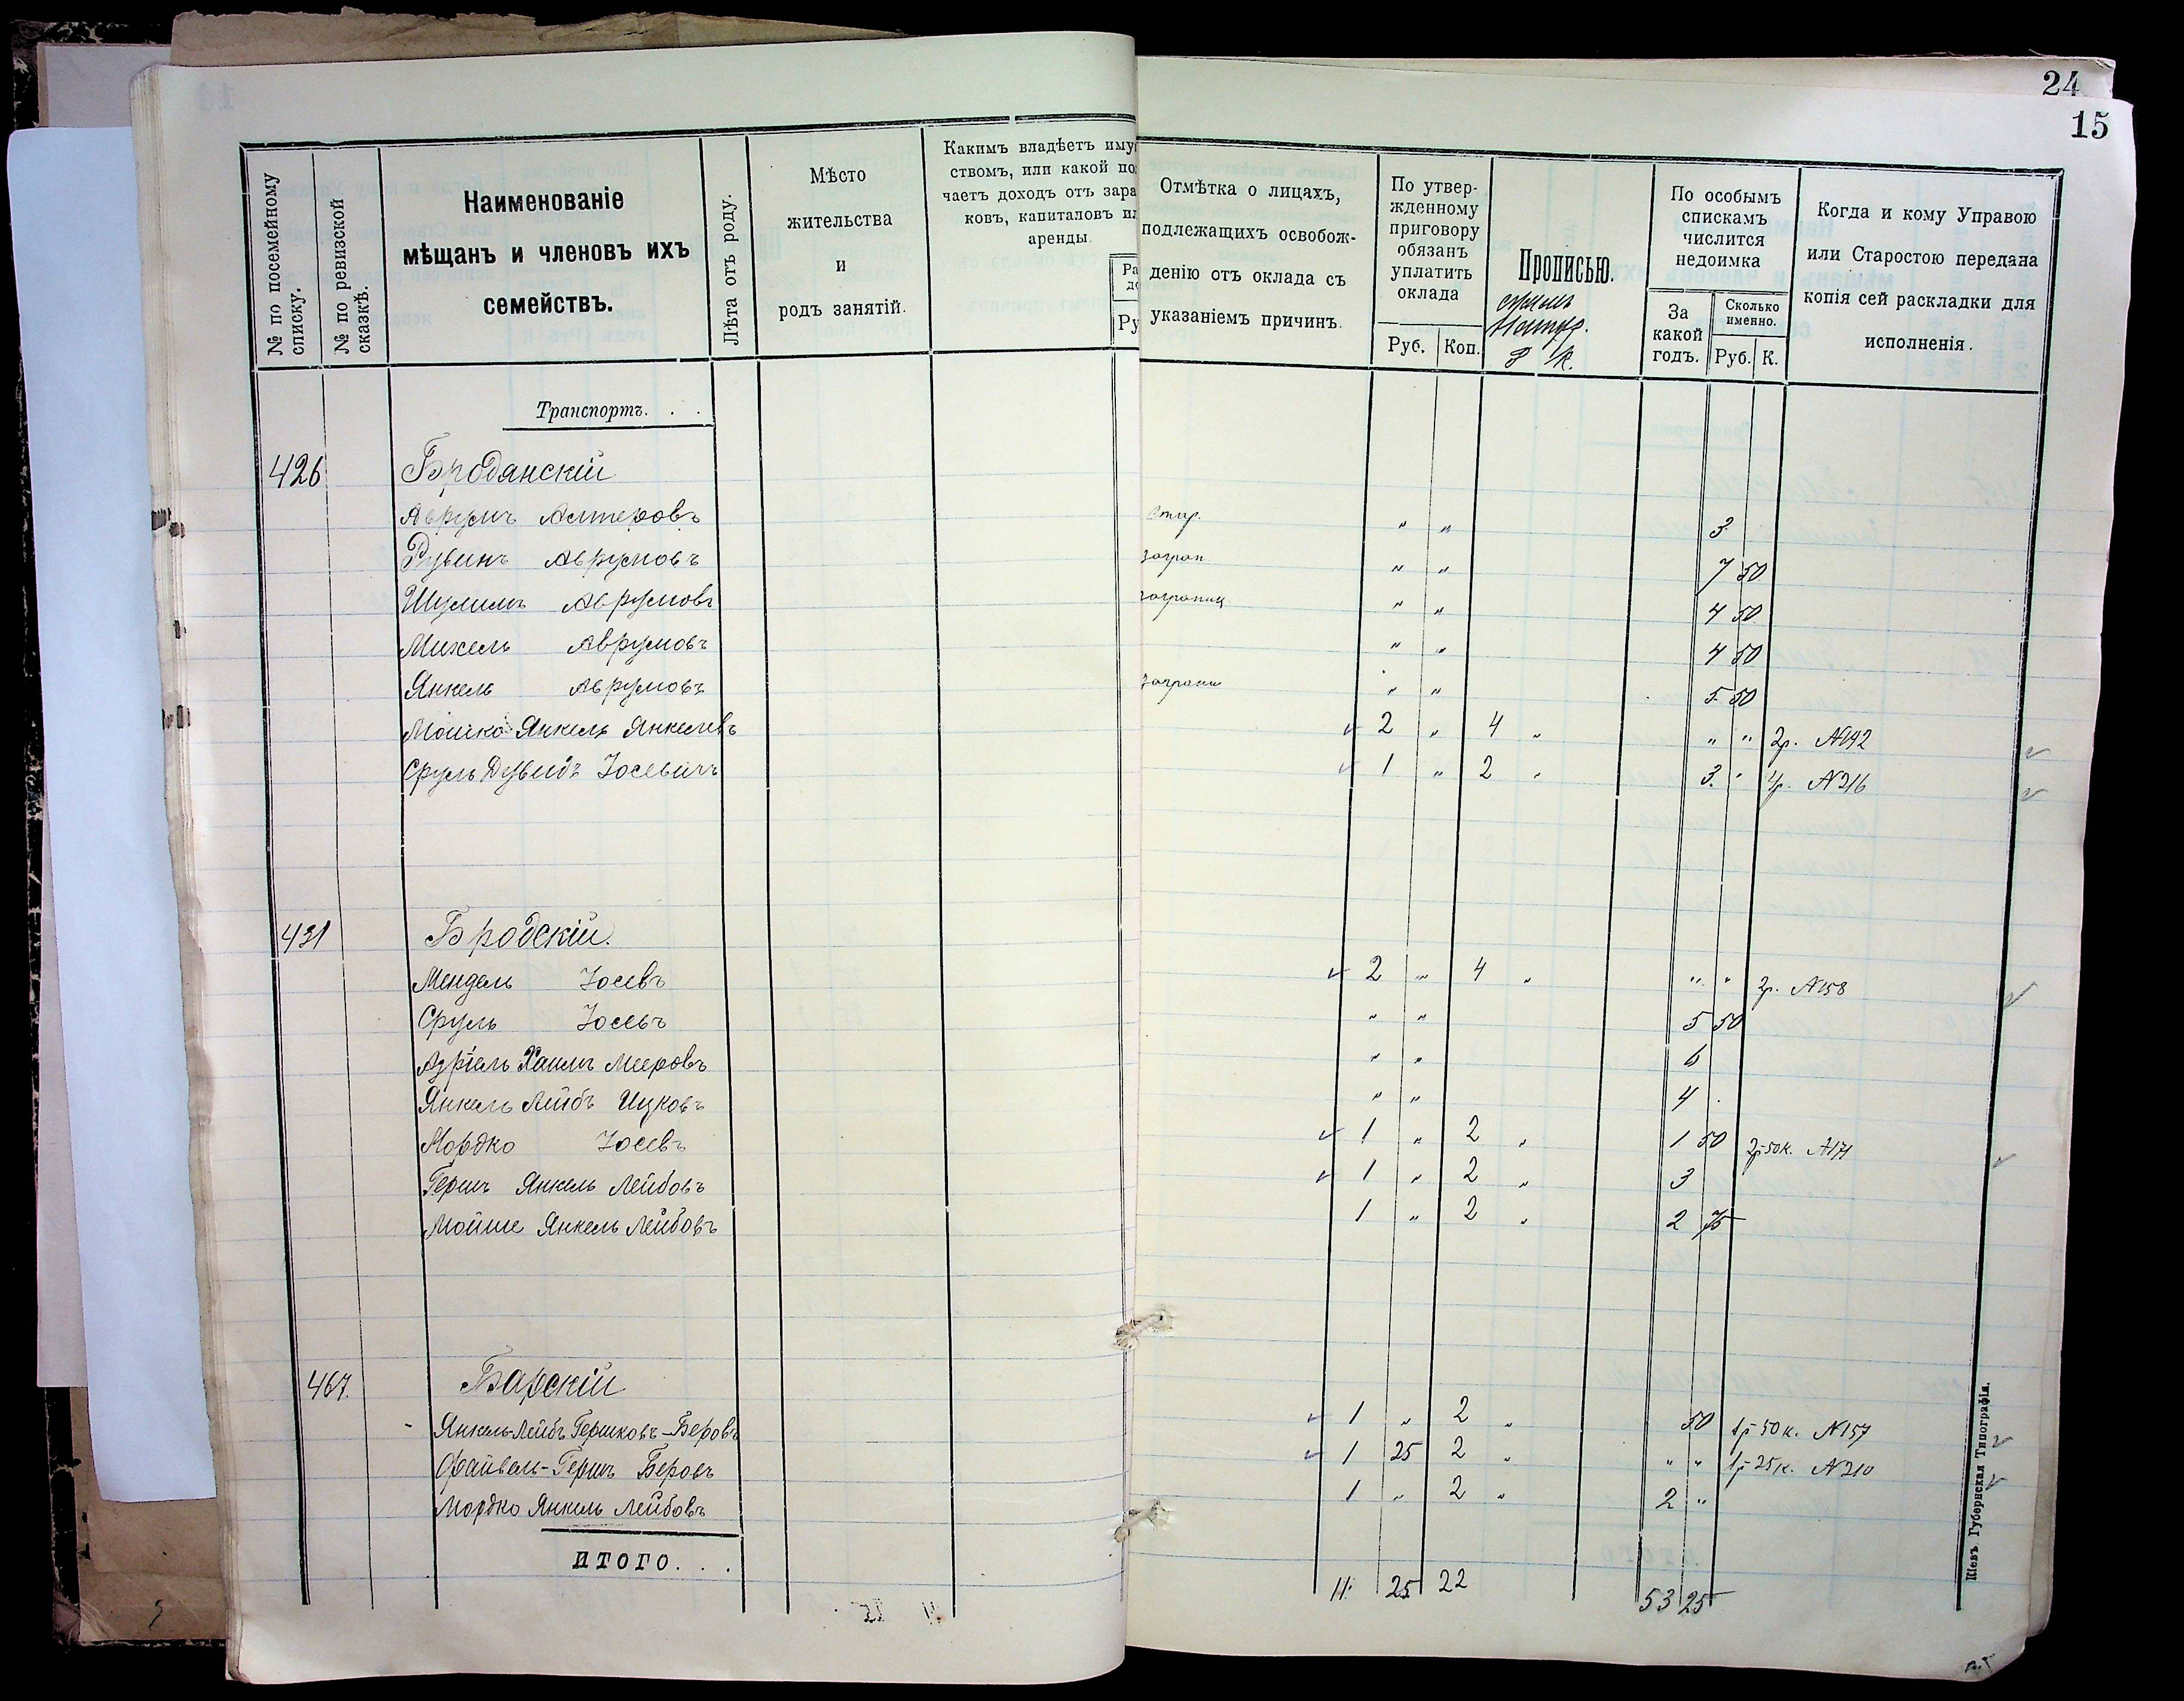 24
15
№ по посемейному списку.
№ по ревизской сказкѣ.
Наименованіе
мѣщанъ и членовъ ихъ
семействъ.
Лѣта отъ роду.
Мѣсто
жительства
и
родъ занятій.
Какимъ владѣетъ иму
ствомъ, или какой по
чаетъ доходъ отъ зара
ковъ, капиталовъ ил
аренды.
Ру
Отмѣтка о лицахъ,
подлежащихъ освобож-
денію отъ оклада съ
указаніемъ причинъ.
По утвер-
жденному
приговору
обязанъ
уплатить
оклада
Руб. Коп.
Прописью.
Р К.
По особымъ
спискамъ
числится
недоимка
За
какой
годъ.
Сколько
именно.
Руб. К.
Когда и кому Управою
или Старостою передана
копія сей раскладки для
исполненія.
Транспортъ. . .
426 Бродянскій
Аврумъ Алтеровъ " " 3
Рувинъ Аврумовъ загран " " 7 50
Шулимъ Аврумовъ заграниц. " " 4 50
Михель Аврумовъ " " 4 50
Янкель Аврумовъ заграни " " 5 50
Мошко Янкель Янкелевъ 2 " 4 " " " 2р. №142
Сруль Дувидъ Іосевичъ 1 " 2 " 3 " 4р. №216
431 Бродскій.
Мендель Іосевъ 2 " 4 " " " 2р. №158
Сруль Іосевъ " " 5 50
Азріель Хаимъ Мееровъ " " 6
Янкель Лейбъ Ицковъ " " 4
Мордко Іосевъ 1 " 2 " 1 50 2р 50к. №171
Гершъ Янкель Лейбовъ 1 " 2 " 3
Мойше Янкель Лейбовъ 1 " 2 " 2 75
467. Барскій
Янкель-Лейбъ Гершковъ-Беровъ 1 " 2 " 50 1р 50к. №157
Файвель-Гершъ Беровъ 1 25 2 " " " 1р 25к. №210
Мордко Янкель Лейбовъ 1 " 2 " 2 "
ИТОГО. . .
11. 25 22 53 25
Кіевъ Губернская Типографія.